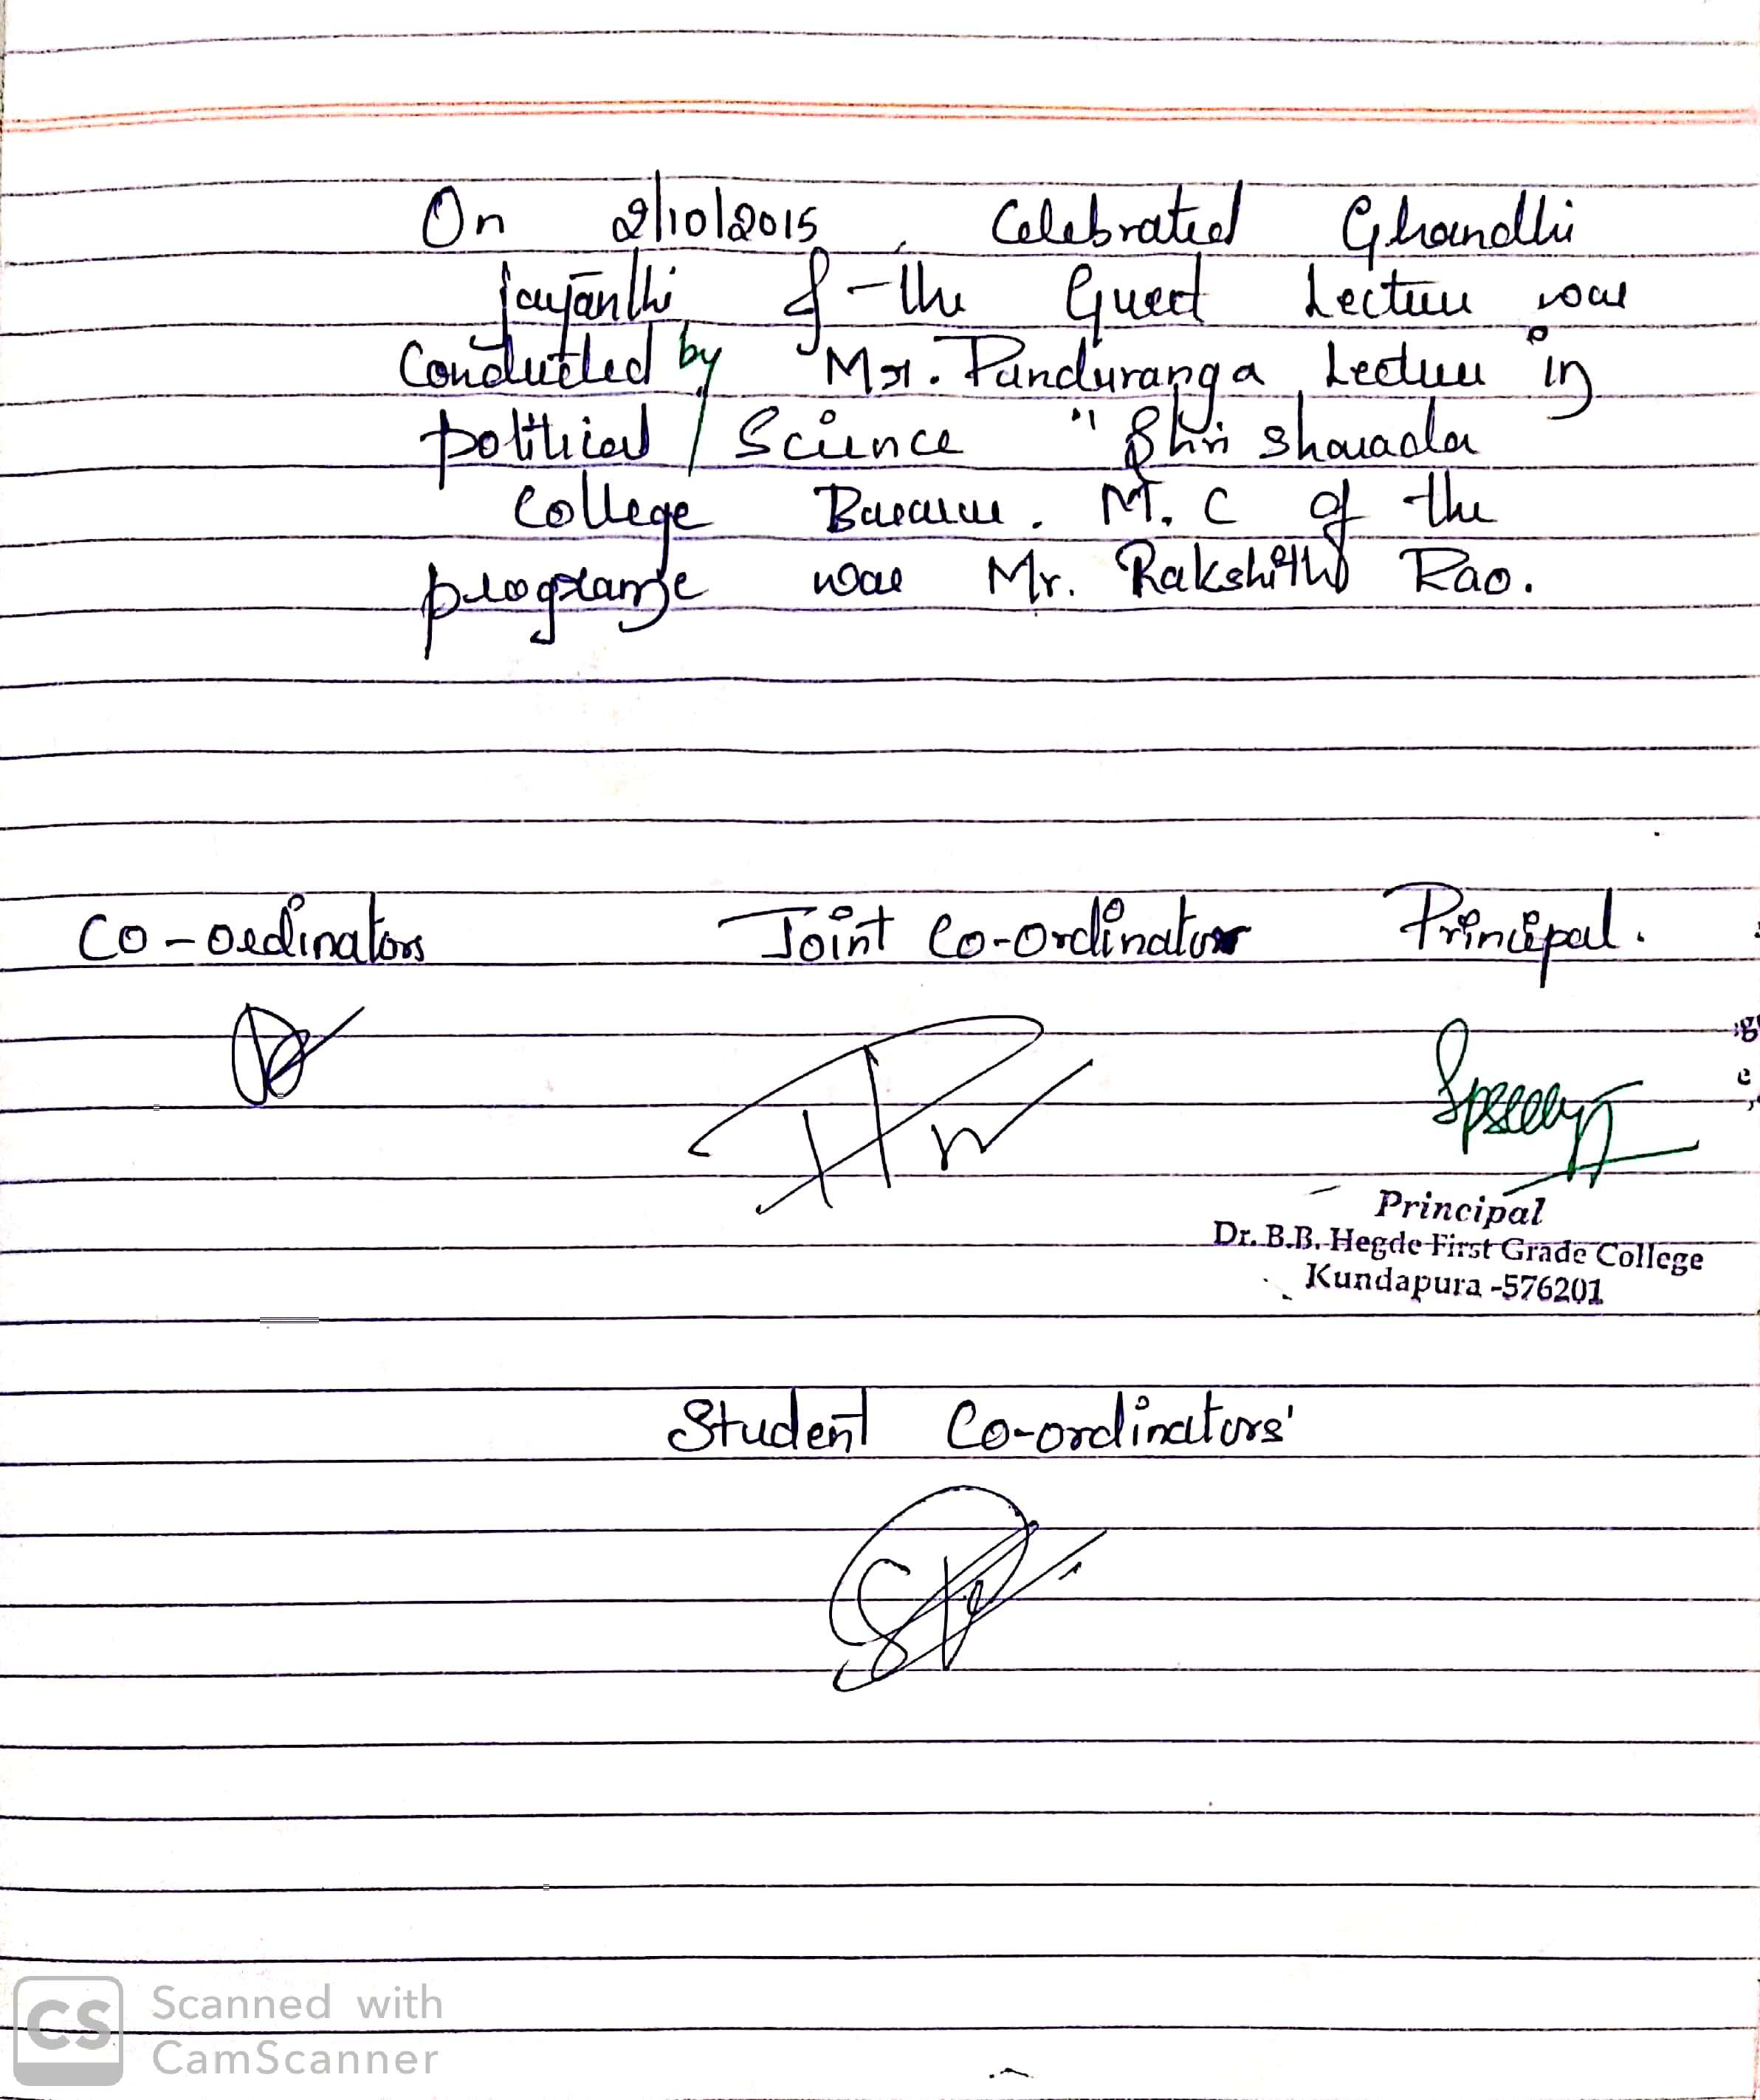 On 2/10/2015, Celebrated Ghandhi
jayanthi & the Guest Lecture was
Conducted by Mr. Panduranga Lecture in
political Science "Shri sharada
College . M. C of the
programe was Mr. Rakshith Rao.
Co-ordinators Joint Co-Ordinator Principal.
Principal
Dr. B.B. Hegde First Grade College
Kundapura -576201
Student Co-ordinators'
CS Scanned with
CamScanner